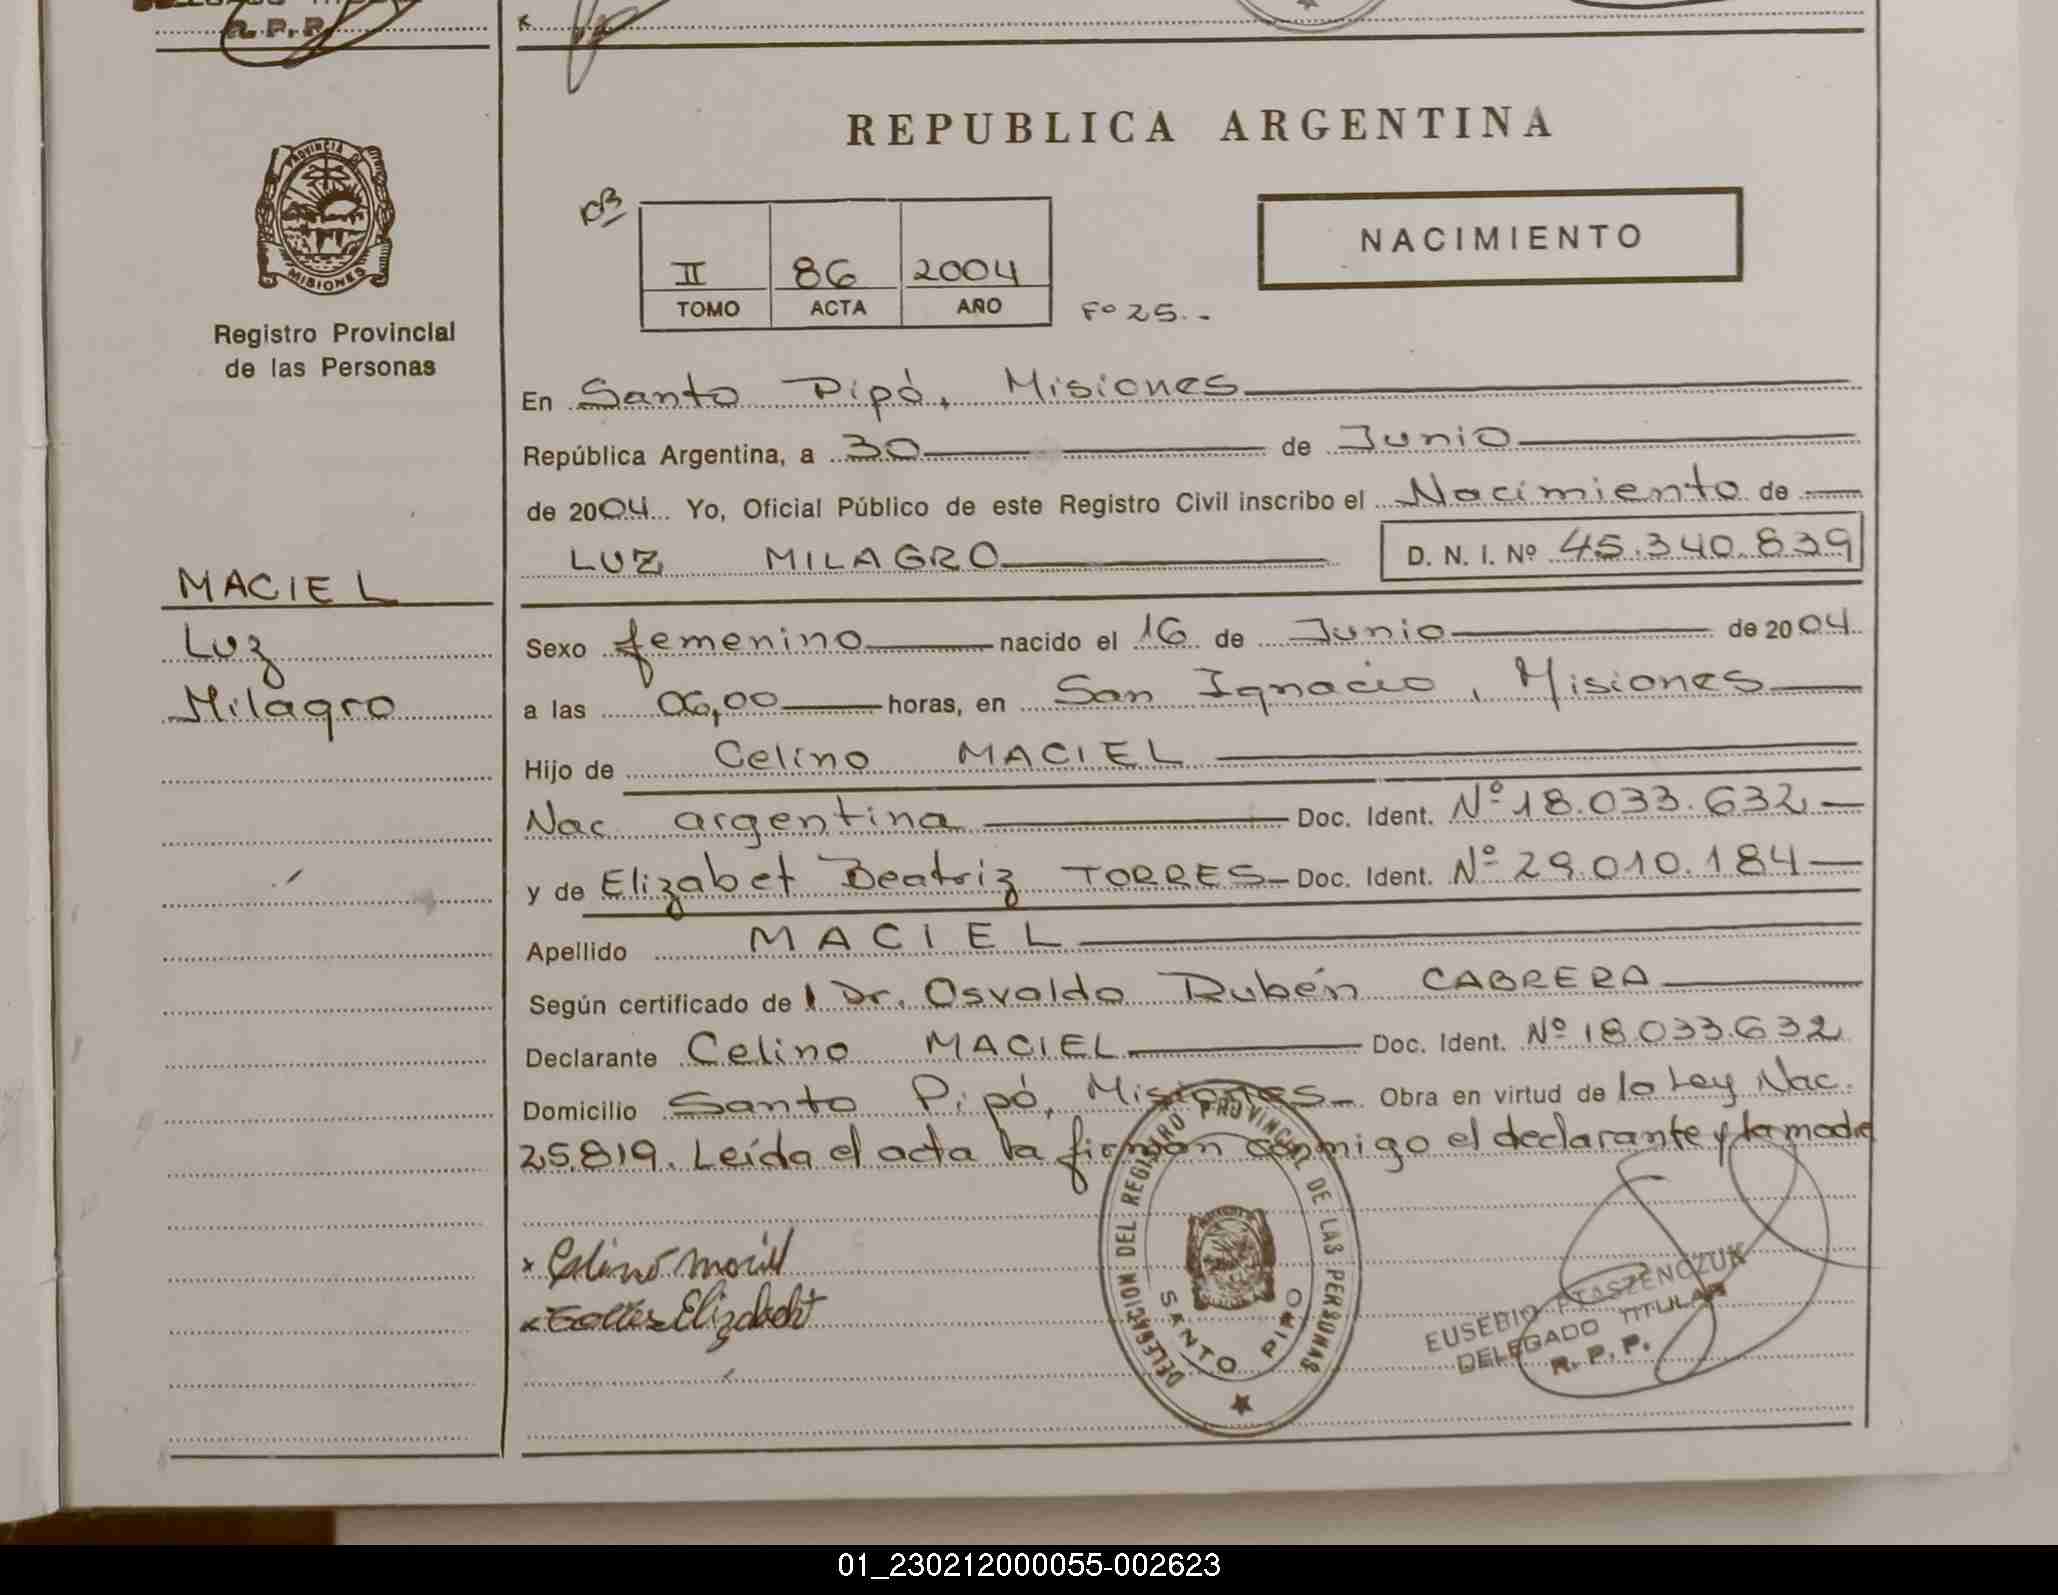 R. P. P.
REPUBLICA ARGENTINA
PROVINCIA DE MISIONES
II 86 2004
TOMO ACTA AÑO
Fº 25.-
NACIMIENTO
Registro Provincial
de las Personas
En Santo Pipó, Misiones
República Argentina, a 30 de Junio
de 2004 Yo, Oficial Público de este Registro Civil inscribo el Nacimiento de
LUZ MILAGRO D. N. I. Nº 45.340.839
MACIEL
Luz
Milagro
Sexo femenino nacido el 16 de Junio de 2004
a las 06,00 horas, en San Ignacio, Misiones
Hijo de Celino MACIEL
Nac. argentina Doc. Ident. Nº 18.033.632
y de Elizabet Beatriz TORRES Doc. Ident. Nº 29.010.184
Apellido MACIEL
Según certificado de l Dr. Osvaldo Rubén CABRERA
Declarante Celino MACIEL Doc. Ident. Nº 18.033.632
Domicilio Santo Pipó, Misiones Obra en virtud de la Ley Nac.
25.819. Leída el acta la firman conmigo el declarante y la madre
DELEGACION DEL REGISTRO PROVINCIAL DE LAS PERSONAS
SANTO PIPO
x Celino Maciel
x Torres Elizabeht
EUSEBIO PTASZENCZUK
DELEGADO TITULAR
R. P. P.
01_230212000055-002623